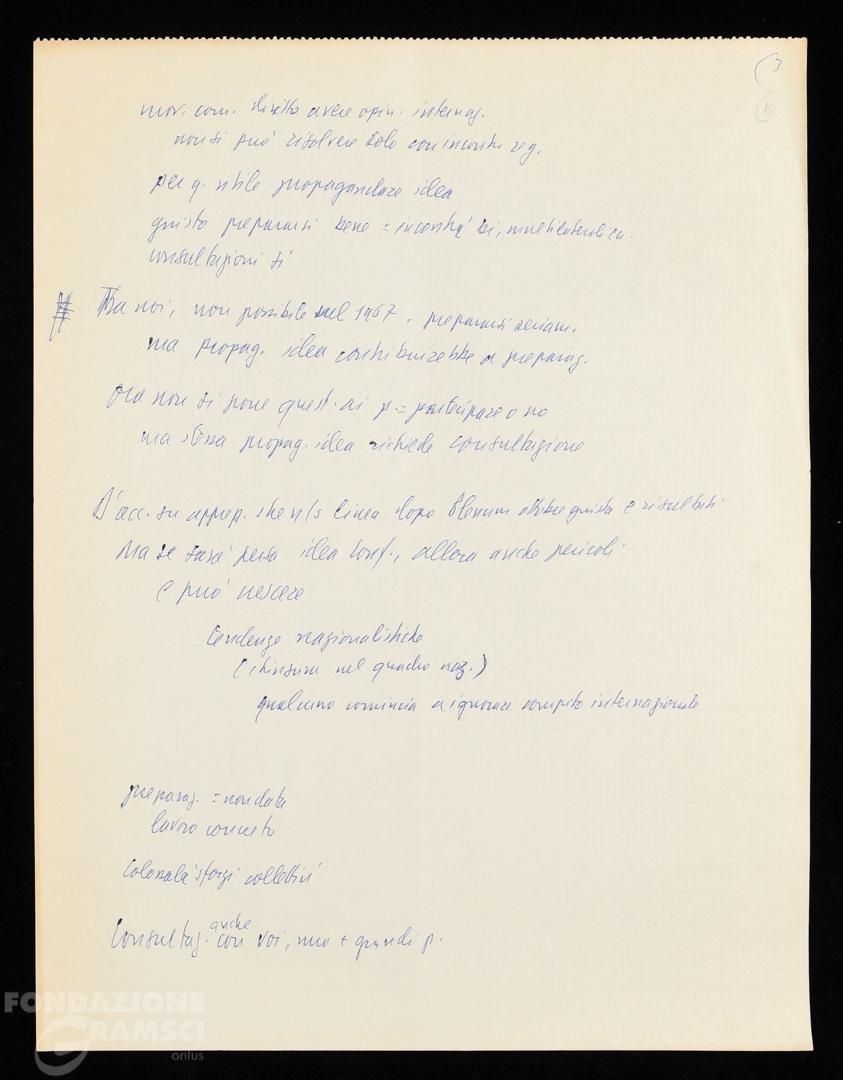 3
mov. com. diritto avere opin. internaz.
non si può risolvere solo con incontri reg.
per q. utile propagandare idea
giusto prepararsi bene = incontri bi, multilaterali ecc.
consultazioni sì
Tra noi, non possibile nel 1967. prepararsi seriam.
ma propag. idea contribuirebbe a preparaz.
Ora non si pone quest. ai p. = partecipare o no
ma stessa propag. idea richiede consultazione
D'acc. su apprez. che n/s linea dopo Plenum ottobre giusta e risultati
Ma se sarà persa idea Conf., allora anche pericoli
e può crescere
tendenze nazionalistiche
(chiusura nel quadro naz.)
qualcuno comincia a ignorare compito internazionale
preparaz. = non data
lavoro concreto
sforzi collettivi
Consultaz. anche con voi, uno + grandi p.
FONDAZIONE
GRAMSCI
onlus